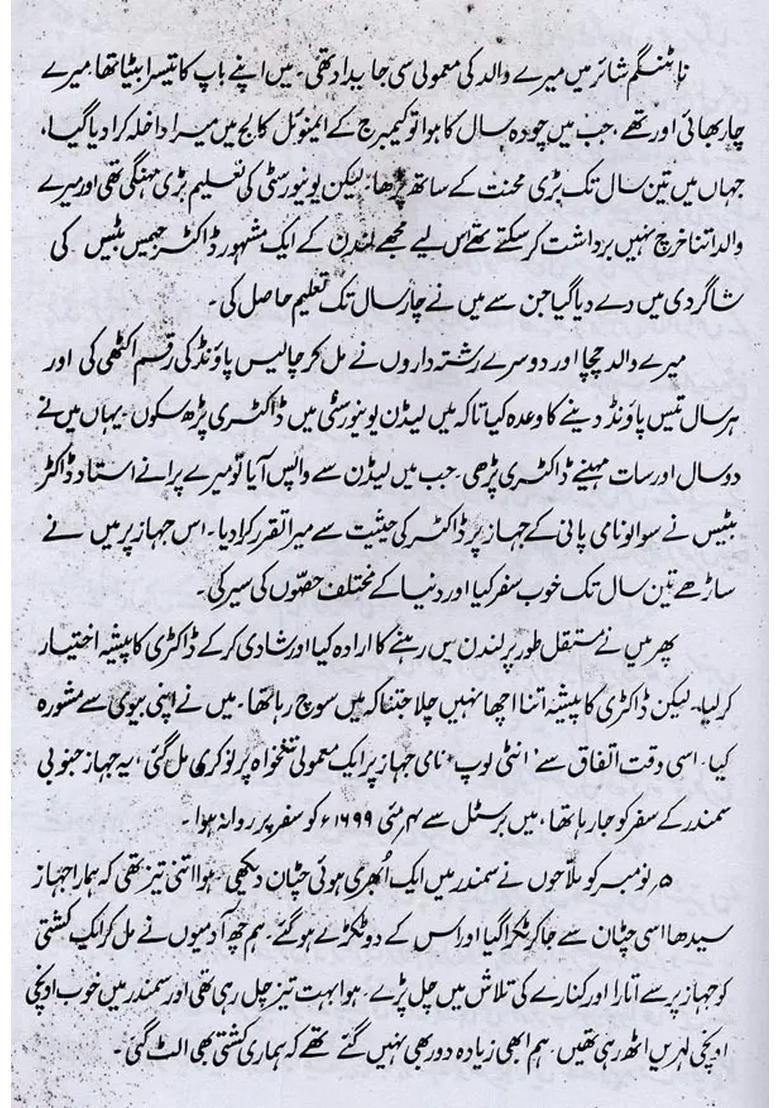 ناٹنگم شائر میں میرے والد کی معمولی سی جایداد تھی۔ میں اپنے باپ کا تیسرا بیٹا تھا، میرے
چار بھائی اور تھے، جب میں چودہ سال کا ہوا تو کیمبرج کے ایمنوئل کالج میں میرا داخلہ کرا دیا گیا،
جہاں میں تین سال تک بڑی محنت کے ساتھ پڑھا۔ لیکن یونیورسٹی کی تعلیم بڑی مہنگی تھی اور میرے
والد اتنا خرچ نہیں برداشت کر سکتے تھے اس لیے مجھے لندن کے ایک مشہور ڈاکٹر جیمس بٹیس کی
شاگردی میں دے دیا گیا جن سے میں نے چار سال تک تعلیم حاصل کی۔
میرے والد چچا اور دوسرے رشتہ داروں نے مل کر چالیس پاؤنڈ کی رقم اکٹھی کی اور
ہر سال تیس پاؤنڈ دینے کا وعدہ کیا تاکہ میں لیڈن یونیورسٹی میں ڈاکٹری پڑھ سکوں۔ یہاں میں نے
دو سال اور سات مہینے ڈاکٹری پڑھی۔ جب میں لیڈن سے واپس آیا تو میرے پرانے استاد ڈاکٹر
بٹیس نے سوالو نامی پانی کے جہاز پر ڈاکٹر کی حیثیت سے میرا تقرر کرا دیا۔ اس جہاز پر میں نے
ساڑھے تین سال تک خوب سفر کیا اور دنیا کے مختلف حصّوں کی سیر کی۔
پھر میں نے مستقل طور پر لندن میں رہنے کا ارادہ کیا اور شادی کر کے ڈاکٹری کا پیشہ اختیار
کر لیا۔ لیکن ڈاکٹری کا پیشہ اتنا اچھا نہیں چلا جتنا کہ میں سوچ رہا تھا۔ میں نے اپنی بیوی سے مشورہ
کیا۔ اسی وقت اتفاق سے 'انٹی لوپ' نامی جہاز پر ایک معمولی تنخواہ پر نوکری مل گئی، یہ جہاز جنوبی
سمندر کے سفر کو جا رہا تھا، میں برسٹل سے ۴ مئی ۱۶۹۹ء کو سفر پر روانہ ہوا۔
۵؍ نومبر کو ملاّحوں نے سمندر میں ایک اُبھری ہوئی چٹان دیکھی۔ ہوا اتنی تیز تھی کہ ہمارا جہاز
سیدھا اسی چٹان سے جا کر ٹکرا گیا اور اس کے دو ٹکڑے ہو گئے۔ ہم چھ آدمیوں نے مل کر ایک کشتی
کو جہاز پر سے اتارا اور کنارے کی تلاش میں چل پڑے۔ ہوا بہت تیز چل رہی تھی اور سمندر میں خوب اونچی
اونچی لہریں اٹھ رہی تھیں۔ ہم ابھی زیادہ دور بھی نہیں گئے تھے کہ ہماری کشتی بھی الٹ گئی۔